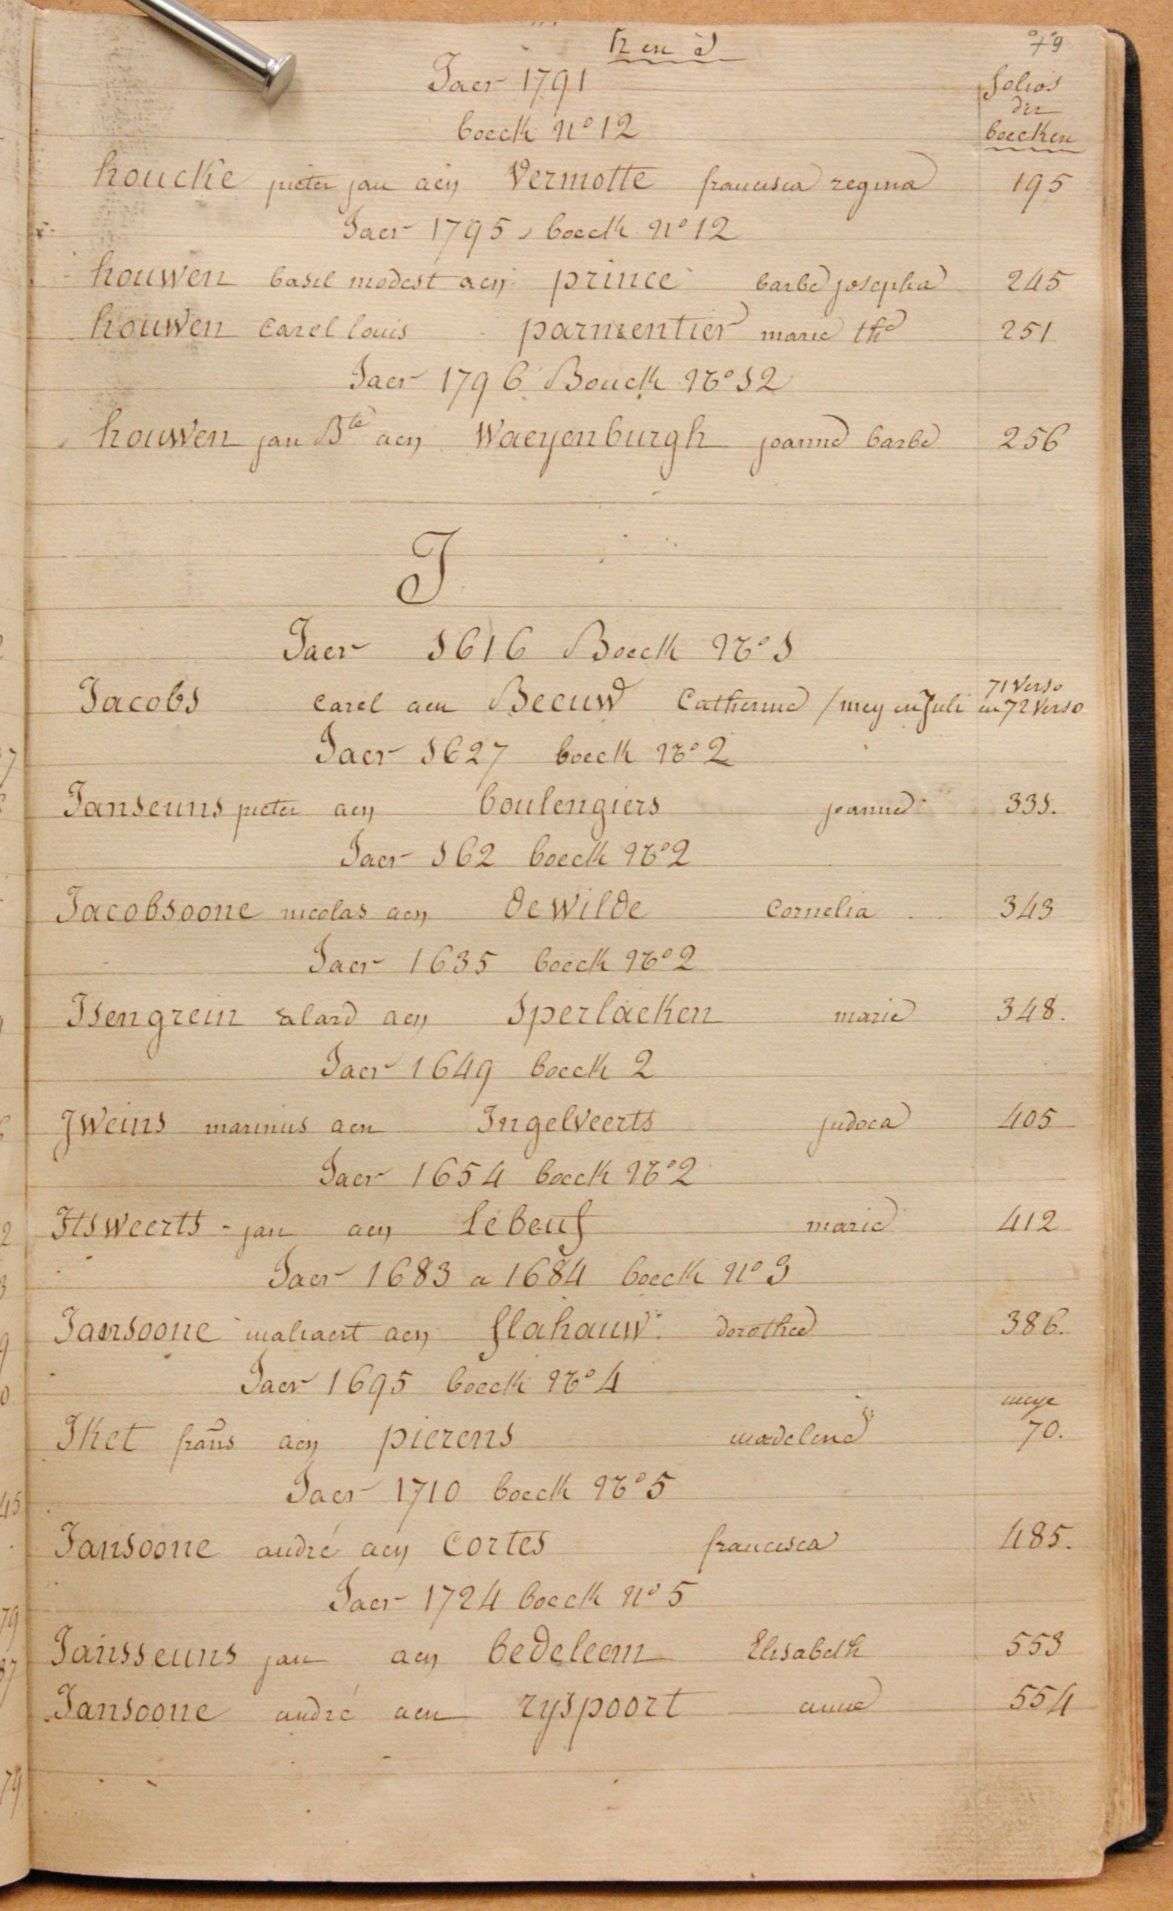 h en J
79
Jaer 1791
folios
der
boecken
boeck n° 12
houcke pieter jan aen Vermotte francisca regina 195
Jaer 1795, boeck n° 12
houwen basil modest aen prince barbe josepha 245
houwen Carel louis parmentier marie the 251
Jaer 1796 Bouck No 12
houwen jan Bte aen Waeyenburgh joanne barbe 256
J
Jaer 1616 Boeck No 1
Jacobs carel aen Beeuw Catherine / mey en Juli 71 Verso en 72 Verso
Jaer 1627 boeck No 2
Janseuns pieter aen boulengiers joanne 331.
Jaer 162 boeck No 2
Jacobsoone nicolas aen de Wilde Cornelia 343
Jaer 1635 boeck No 2
Isengrein alard aen Sperlaeken marie 348.
Jaer 1649 boeck 2
Jweins marinus aen Ingelveerts judoca 405
Jaer 1654 boeck No 2
Itsweerts - jan aen lebeuf marie 412
Jaer 1683 a 1684 boeck n° 3
Jansoone maliaert aen flahauw dorothee 386.
Jaer 1695 boeck No 4
meye
Iket frans aen pierens madelene 70.
Jaer 1710 boeck No 5
Jansoone andré aen Cortes francisca 485.
Jaer 1724 boeck n° 5
Jansseuns jan aen bedeleem Elisabeth 553
Jansoone andré aen ryspoort anne 554